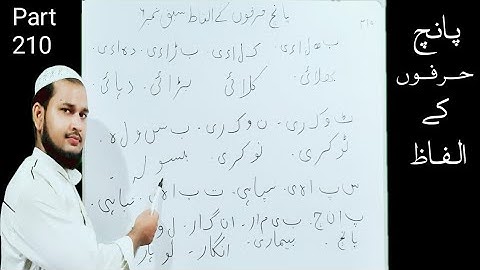 Part
210
پانچ
حرفوں
کے
الفاظ
پانچ حرفوں کے الفاظ سبق نمبر
ب ھ ل ا ئ ی . ک ل ا ئ ی . ب ڑ ا ئ ی . د ہ ا ئ ی
بھلائی . کلائی . بڑائی . دہائی
ٹ و ک ر ی . ن و ک ر ی . ب س و ل ہ
ٹوکری . نوکری . بسولہ
س پ ا ہ ی . سپاہی . ت ب ا ہ ی . تباہی
پ ا ن چ . ب ی م ا ر . ا ن گ ا ر . ل و
پانچ . بیماری . انگار . لوہار